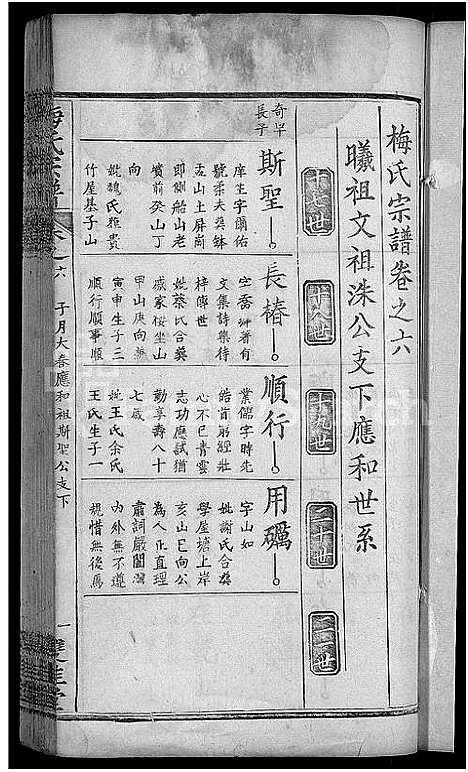 梅氏宗譜卷之六
曦祖文祖洙公支下應和世系
十七世
十八世
十九世
二十世
二一世
奇早
長子
斯聖
庠生字爾佑
號柔夫葬缽
盂山土屏崗
即側船山老
墳前癸山丁
向
妣魏氏雅貴
竹屋基子山
長椿
字喬 著有
文集詩集待
梓傳世
妣蔡氏合葬
戚家椏坐山
甲山庚向兼
寅申生子三
順行順事順
順行
業儒字時先
皓首窮經壯
心不已青雲
志功應試猶
勤享壽八十
七歲
妣王氏余氏
王氏生子一
用礪
字山如
妣謝氏合葬
學屋塘上岸
亥山巳向公
為人正直理
肅詞嚴閭灣
內外無不遵
規惜無後焉
梅氏宗譜
卷之六 子月大春應和祖斯聖公支下
一